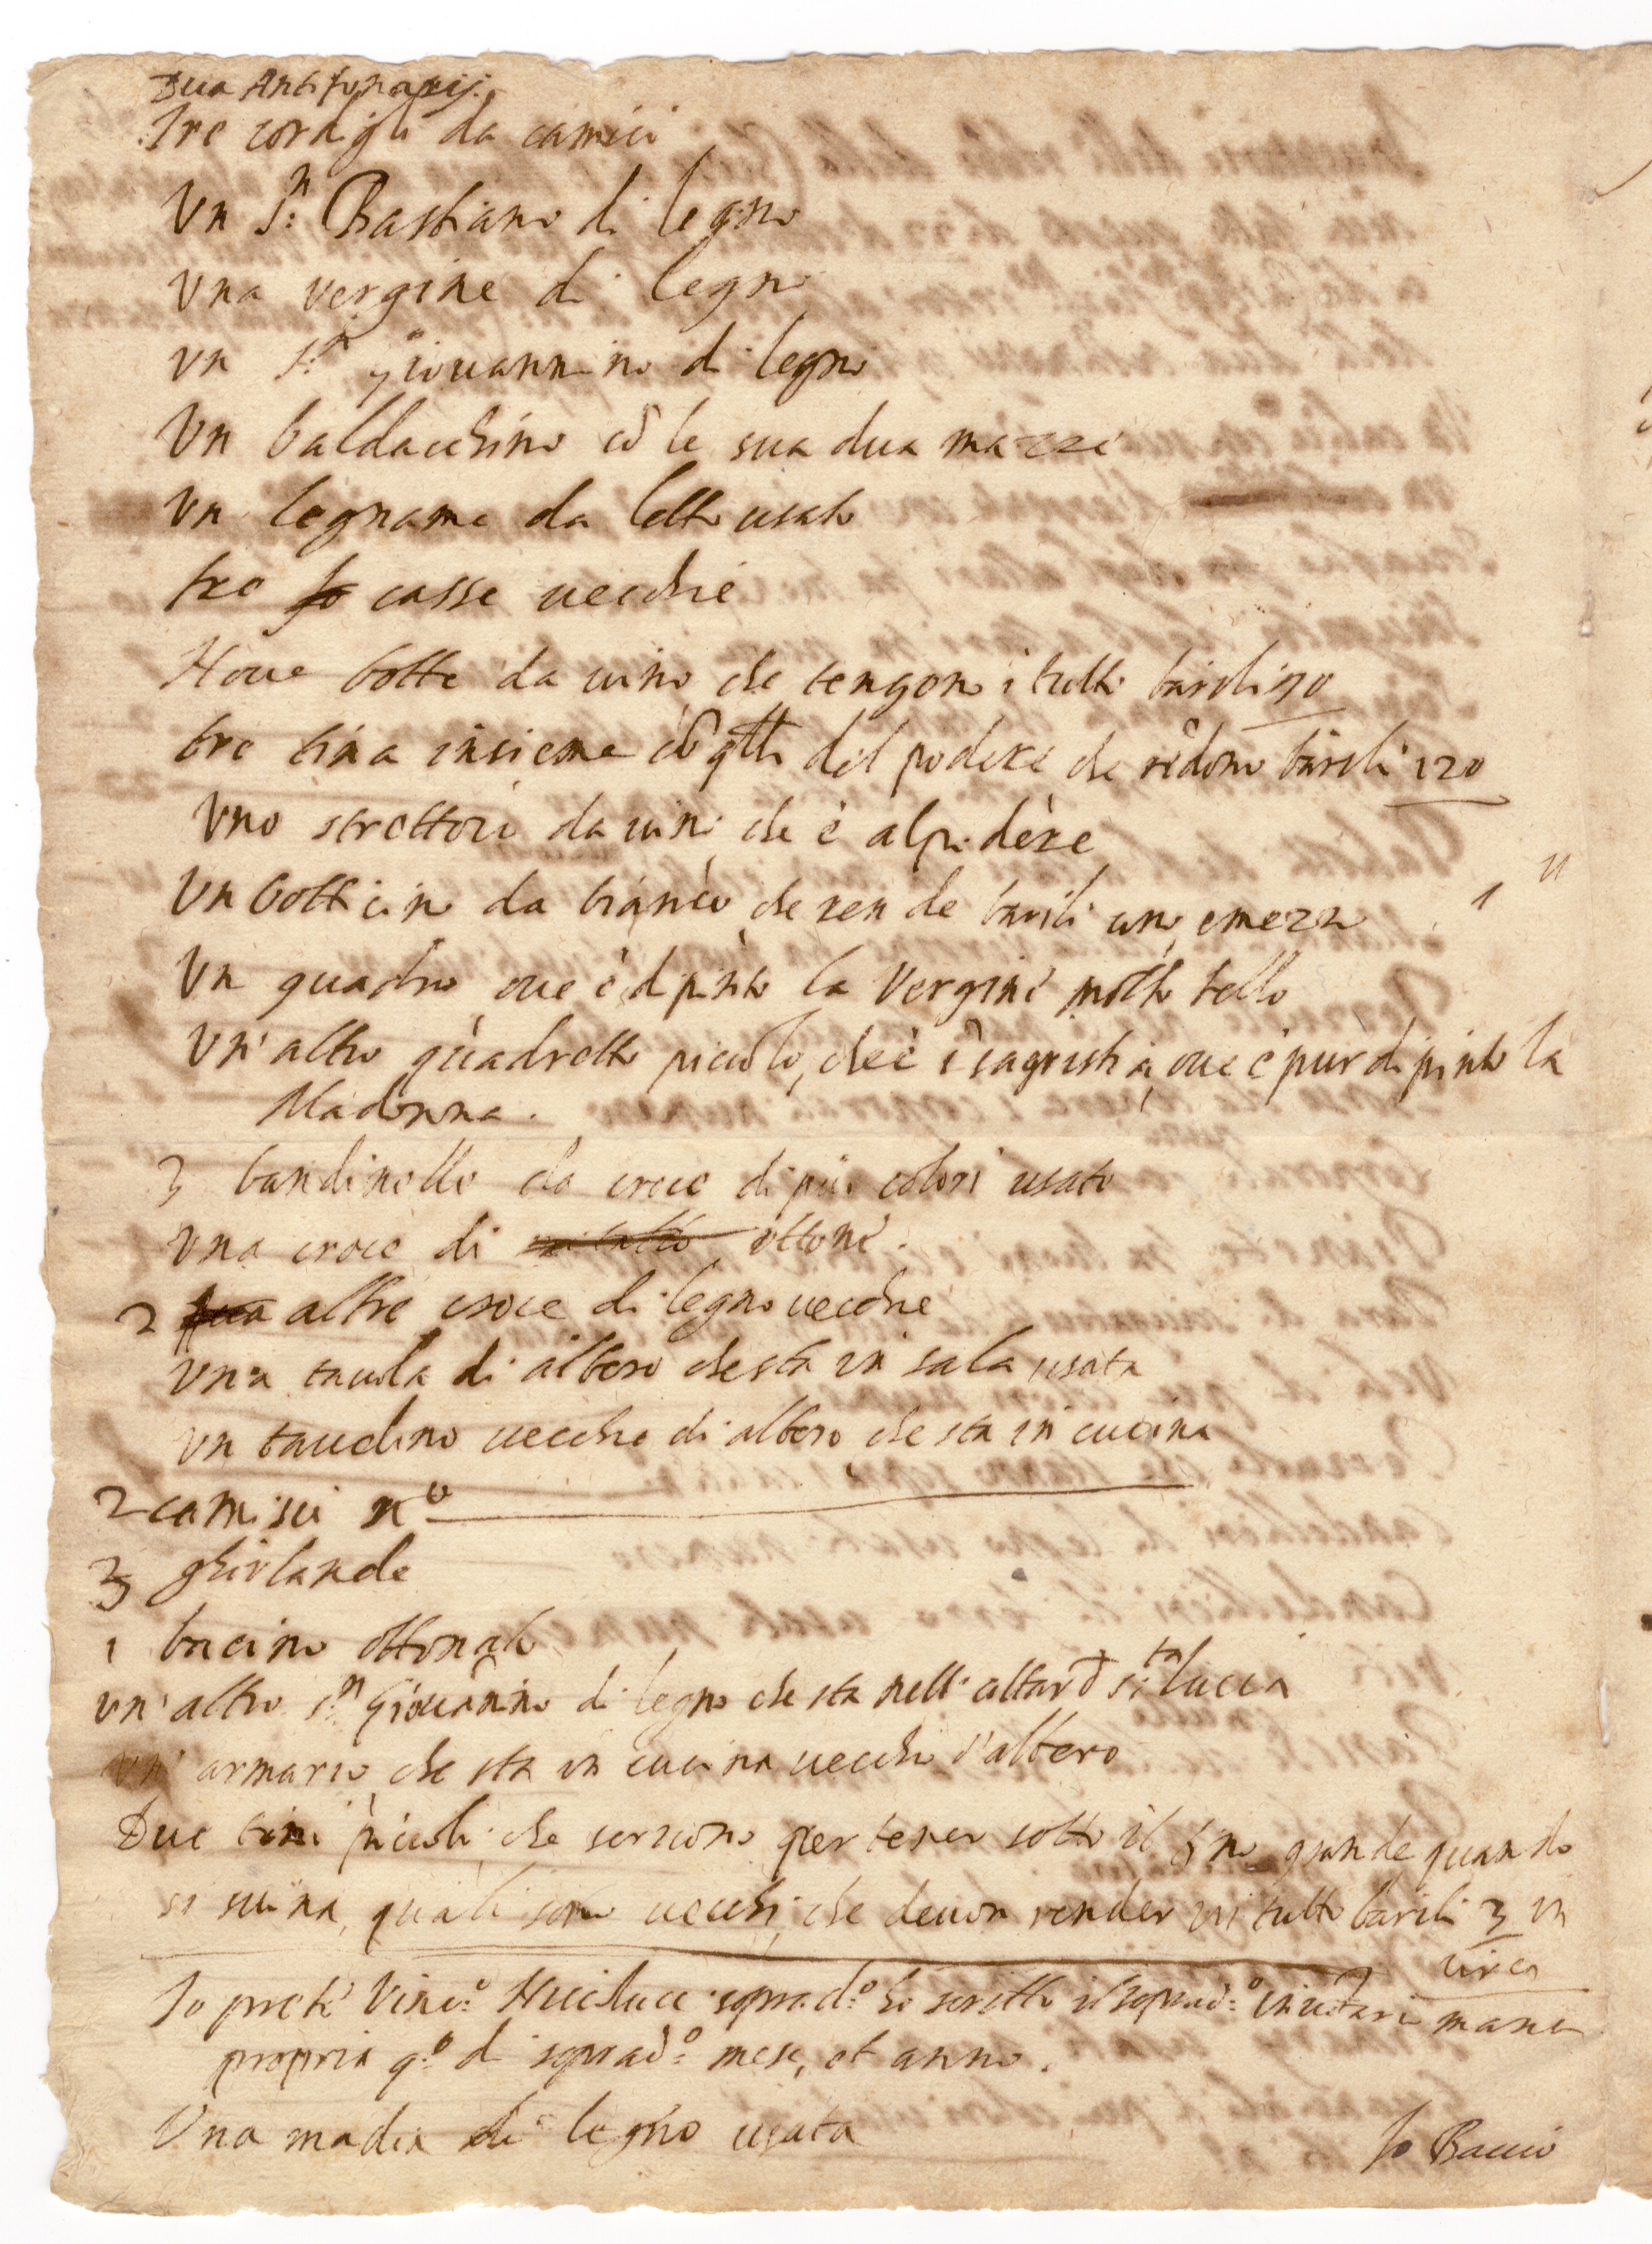 Dua Antifonarij.
Tre cordigli da camici
Vn S.n Bastiano di legno
Vna vergine di legno
vn S.n Giouannino di legno
Vn baldacchino cõ le sua dua mazze
Vn legname da letto usato
tre casse uecchie
Noue botte da uino che tengono ĩ tutto barili 90
tre tina insieme cõ q̃lli del podere che rẽdono barili 120
Vno strettoio da uino che è al podere
Vn botticino da bianco, che rende barili uno, e mezzo
Vn quadro, oue è dipinto la Vergine molto bello
Vn' altro quadretto piccolo, che è ĩ sagrestia, oue è pur dipinto la
Madonna.
3 bandinelle da croce di più colori usate
Vna croce di ottone.
2 altre croce di legno uecchie
Vna tauola di albero che sta in sala usata
vn tauolino uecchio di albero che sta in cucina
2 camisci n.o
3 ghirlande
1 bacino ottonato
vn' altro S.n Giouãnino di legno che sta nell' altar d S.ta Lucia
vn' armario, che sta in cucina uecchio d'albero
Due tini piccoli che seruono per tener sotto il tino grande quando
si suina, quali sono uecchi, che deuon render in tutto barili 3 in
circa
Io prete Vinc.o soprad.o ho scritto il soprad.o inuẽtario mano
propria q.o dì soprad.o mese, et anno.
Vna madia di legno usata
Io Baccio